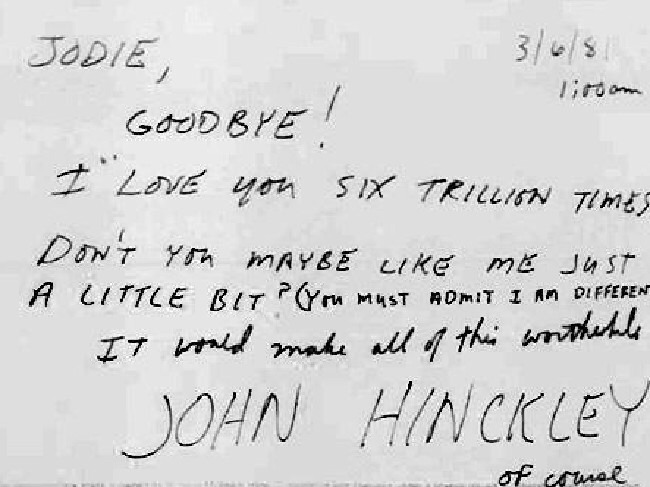 JODIE,
3/6/81
1:00am
GOODBYE!
I LOVE you SIX TRILLION TIMES
DON'T YOU MAYBE LIKE ME JUST
A LITTLE BIT? (YOU MUST ADMIT I AM DIFFEREN
IT would make all of this worthwhile
JOHN HINCKLEY
of course